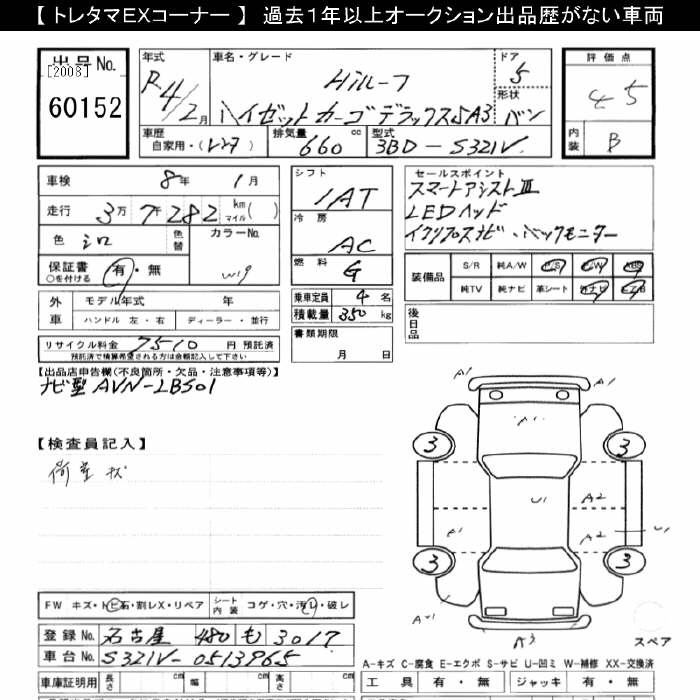 【 トレタマEXコーナー 】 過去1年以上オークション出品歴がない車両
出品No.
[2008]
60152
年式
R4/2月
車名・グレード
Hiルーフ
ハイゼットカーゴデラックスSA3
ドア
5
形状
バン
評価点
4.5
内装
B
車歴
自家用・(レンタ)
排気量
660 cc
型式
3BD-S321V
車検 8年 1月
走行 3万7千282 km マイル( )
色 シロ
色替
カラーNo.
W19
保証書 有・無
○を付ける
外車
モデル年式 年
ハンドル 左・右 ディーラー・並行
リサイクル料金 7510 円預託済
預託済で積算希望される方は金額記入して下さい
シフト
IAT
冷房
AC
燃料
G
乗車定員 4 名
積載量 350 kg
書類期限
月 日
セールスポイント
スマートアシストⅢ
LEDヘッド
イクリプスナビ・バックモニター
装備品
S/R 純A/W P/S P/W ABS
純TV 純ナビ 革シート 社ナビ エアB
後日品
【出品店申告欄(不良箇所・欠品・注意事項等)】
ナビ型 AVN-LBS01
【検査員記入】
荷室 キズ
A1
A1
A1
3
3
U1
A2
A1
A2
U1
3
3
A3
スペア
FW キズ・トビ石・割レX・リペア
シート内装 コゲ・穴・汚レ・破レ
登録No. 名古屋 480 も 3017
車台No. S321V-0513965
車庫証明用 長さ cm 幅 cm 高さ cm
A-キズ C-腐食 E-エクボ S-サビ U-凹ミ W-補修 XX-交換済
工具 有・無 ジャッキ 有・無